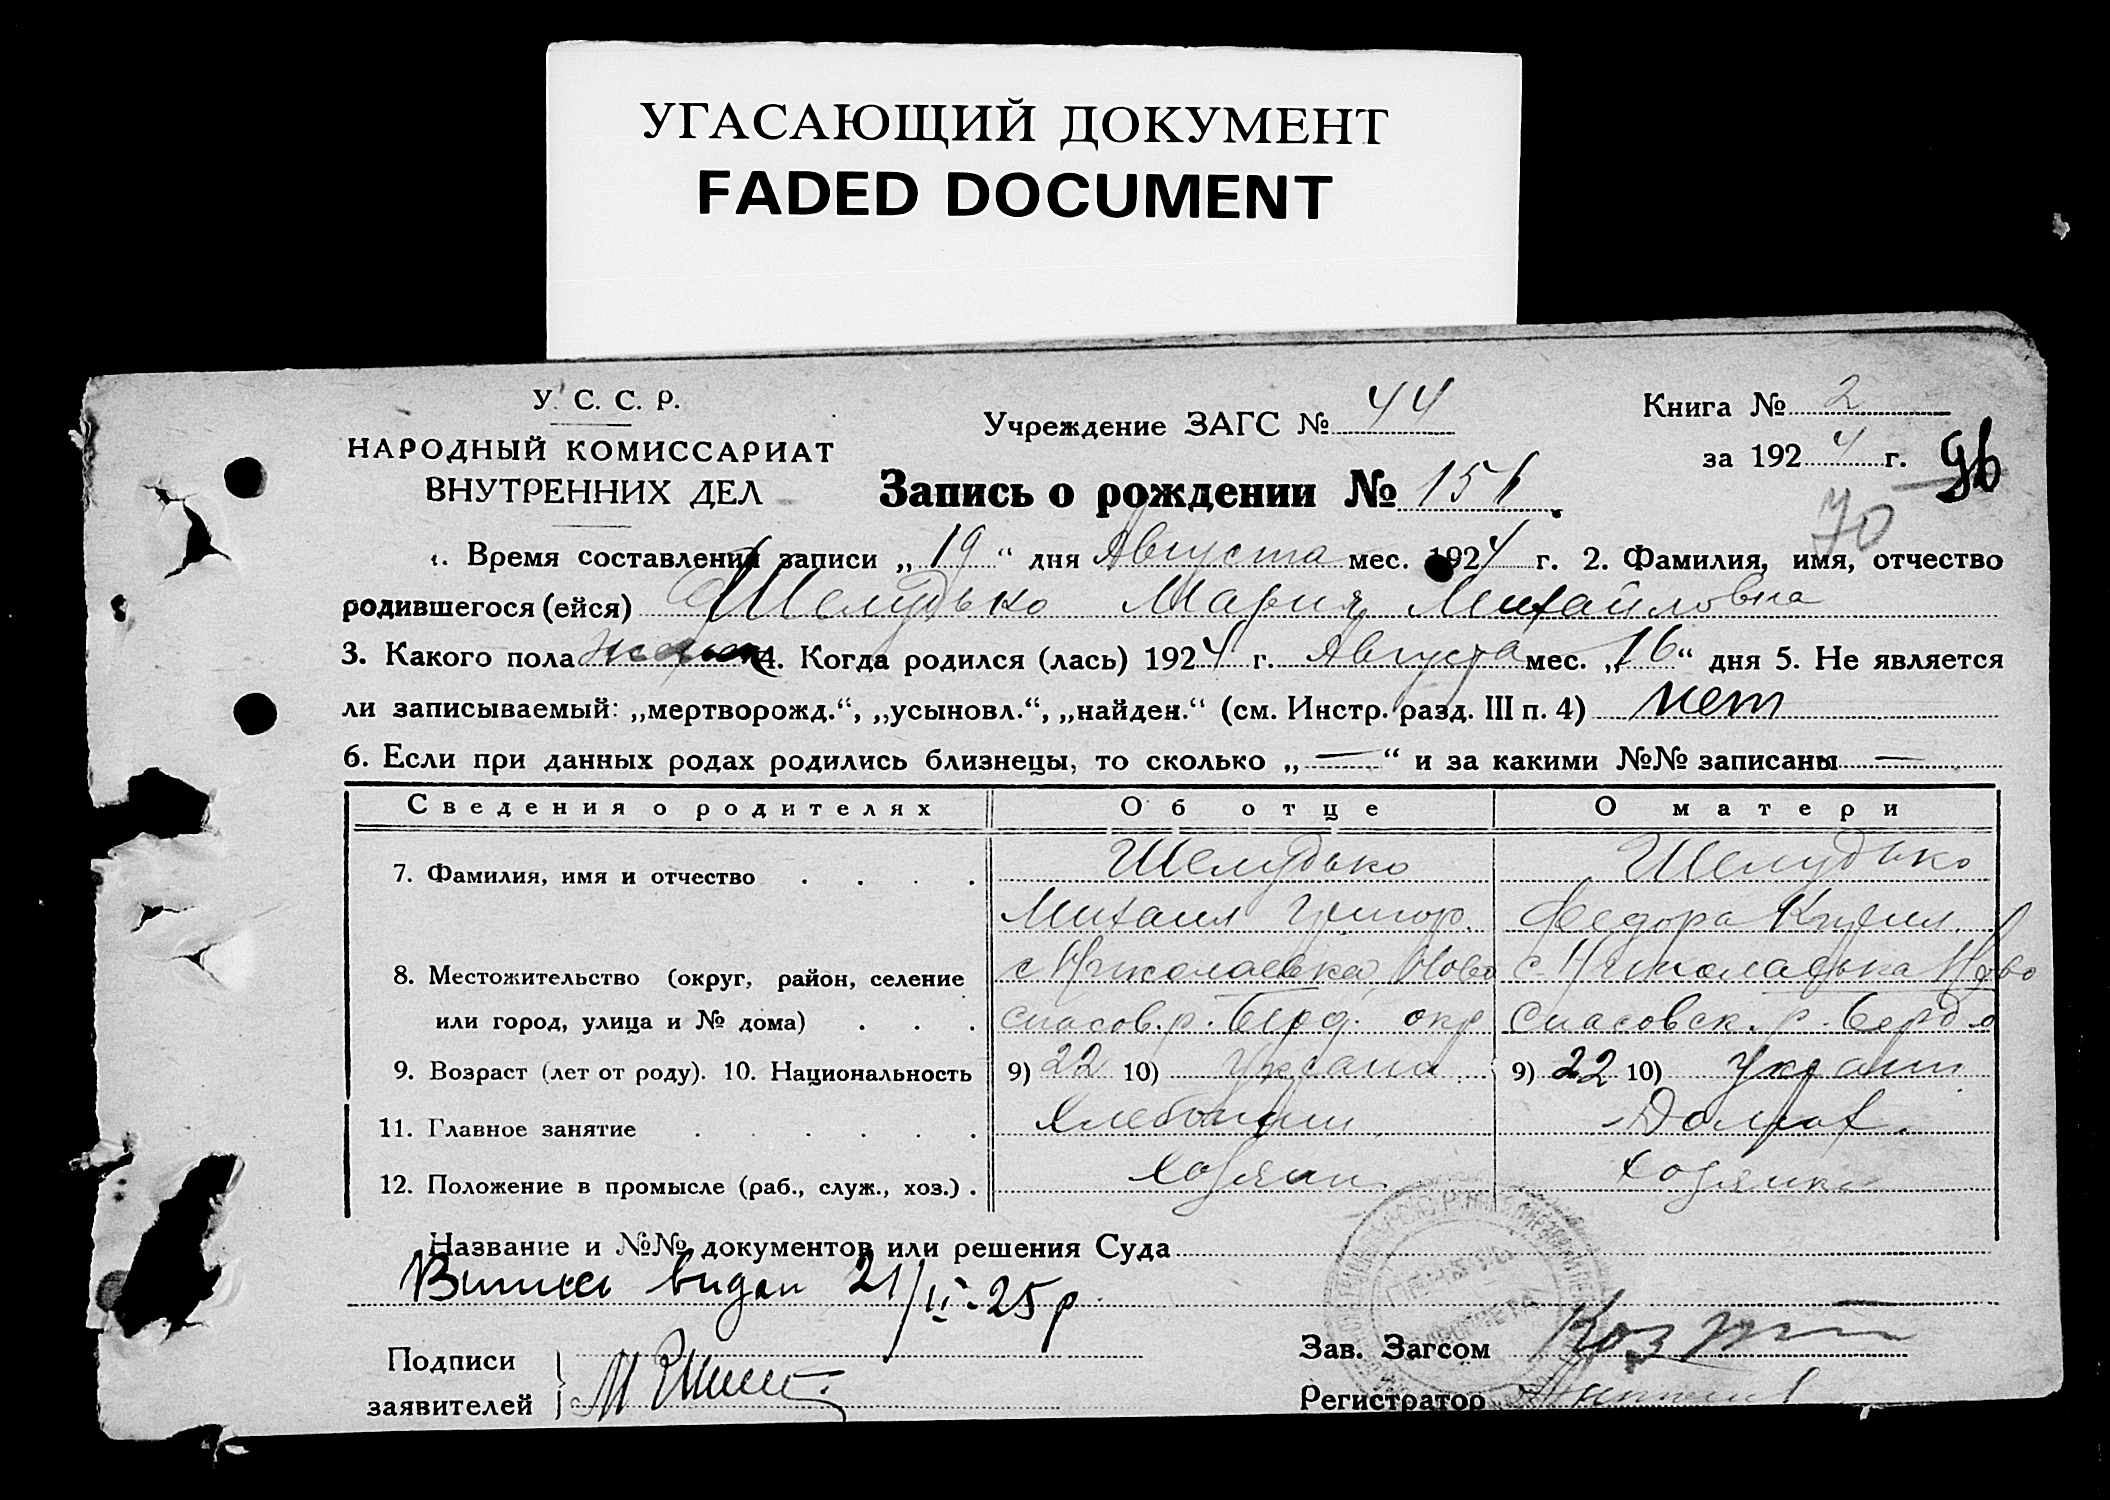 УГАСАЮЩИЙ ДОКУМЕНТ
FADED DOCUMENT
У. С. С. Р.
НАРОДНЫЙ КОМИССАРИАТ
ВНУТРЕННИХ ДЕЛ
Учреждение ЗАГС № 44
Книга № 2
за 1924 г. 96
70
Запись о рождении № 151.
1. Время составления записи „19“ дня Августа мес. 1924 г. 2. Фамилия, имя, отчество
родившегося (ейся) Шелудько Мария Михайловна
3. Какого пола 4. Когда родился (лась) 1924 г. Августа мес. „16“ дня 5. Не является
ли записываемый: „мертворожд.“, „усыновл.“, „найден.“ (см. Инстр. разд. III п. 4) нет
6. Если при данных родах родились близнецы, то сколько „—“ и за какими №№ записаны —
Сведения о родителях Об отце О матери
7. Фамилия, имя и отчество . . . . Шелудько Шелудько
Михаил Григор. Федора Кирил.
8. Местожительство (округ, район, селение с Николаевка Ново с. Николаевка Ново
или город, улица и № дома) . . . спасов. р. Берд. окр Спасовск. р. Берд. о
9. Возраст (лет от роду). 10. Национальность 9) 22 10) Украин. 9) 22 10) Украин.
11. Главное занятие . . . . . . Хлебопаш. Домхоз.
12. Положение в промысле (раб., служ., хоз.) . Хозяин Хозяйка
Название и №№ документов или решения Суда
Випись видан 21/II-25 р
Подписи
заявителей
Зав. Загсом
Регистратор